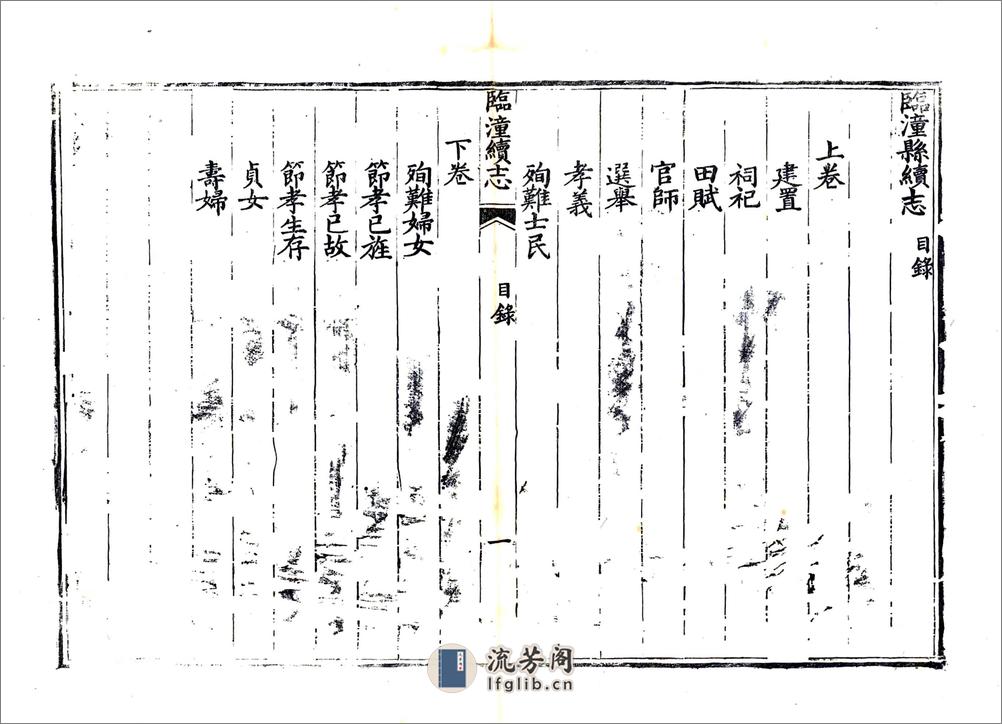 臨潼縣續志 目錄
上卷
建置
祠祀
田賦
官師
選舉
孝義
殉難士民
臨潼續志 目錄 一
下卷
殉難婦女
節孝已旌
節孝已故
節孝生存
貞女
壽婦
流芳阁
lfglib.cn